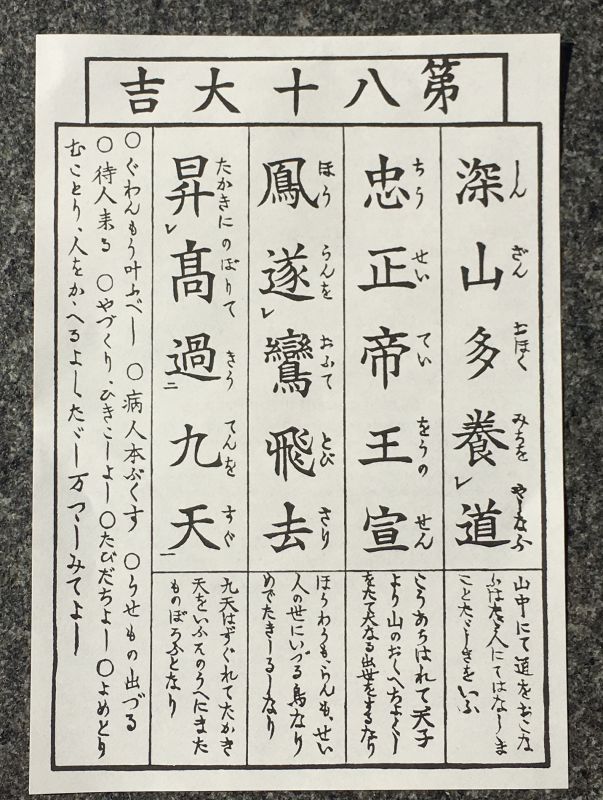 第八十大吉
深山多養道
しん ざん おほく みちを やしなふ
忠正帝王宣
ちう せい てい をうの せん
鳳遂鸞飛去
ほう らんを おふて とび さり
昇髙過九天
たかきにのぼりて きう てんを すぐ
山中にて道をおこな
ふは 人にてはなしま
ことたゞしきをいふ
こうあらはれて天子
より山のおくへちよくし
をたて大なる出世をするなり
ほうわうも、らんも、せい
人の世にいづる鳥なり
めでたきしるしなり
九天はすぐれてたかき
天をいふそのうへにまた
ものぼらふとなり
○ぐわんもう叶ふべし ○病人本ぶくす ○うせもの出づる
○待人来る ○やづくり、ひきこしよし ○たびだちよし ○よめとり
むことり、人をかゝへるよし、たゞし万つゝしみてよし